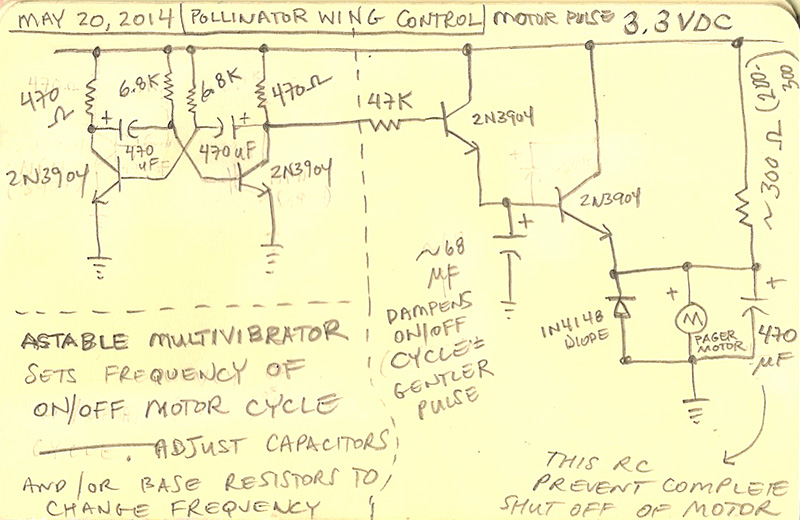 MAY 20, 2014 POLLINATOR WING CONTROL MOTOR PULSE 3.3 VDC
470 Ω
6.8K
6.8K
470 Ω
47K
2N3904
~ 300 Ω (200-300)
+
470 uF
+
470 uF
2N3904
2N3904
2N3904
+
~68 µF
DAMPENS
ON/OFF
CYCLE =
GENTLER
PULSE
1N4148
DIODE
+
M
PAGER
MOTOR
+
470 µF
ASTABLE MULTIVIBRATOR
SETS FREQUENCY OF
ON/OFF MOTOR CYCLE
. ADJUST CAPACITORS
AND/OR BASE RESISTORS TO
CHANGE FREQUENCY
THIS RC
PREVENT COMPLETE
SHUT OFF OF MOTOR